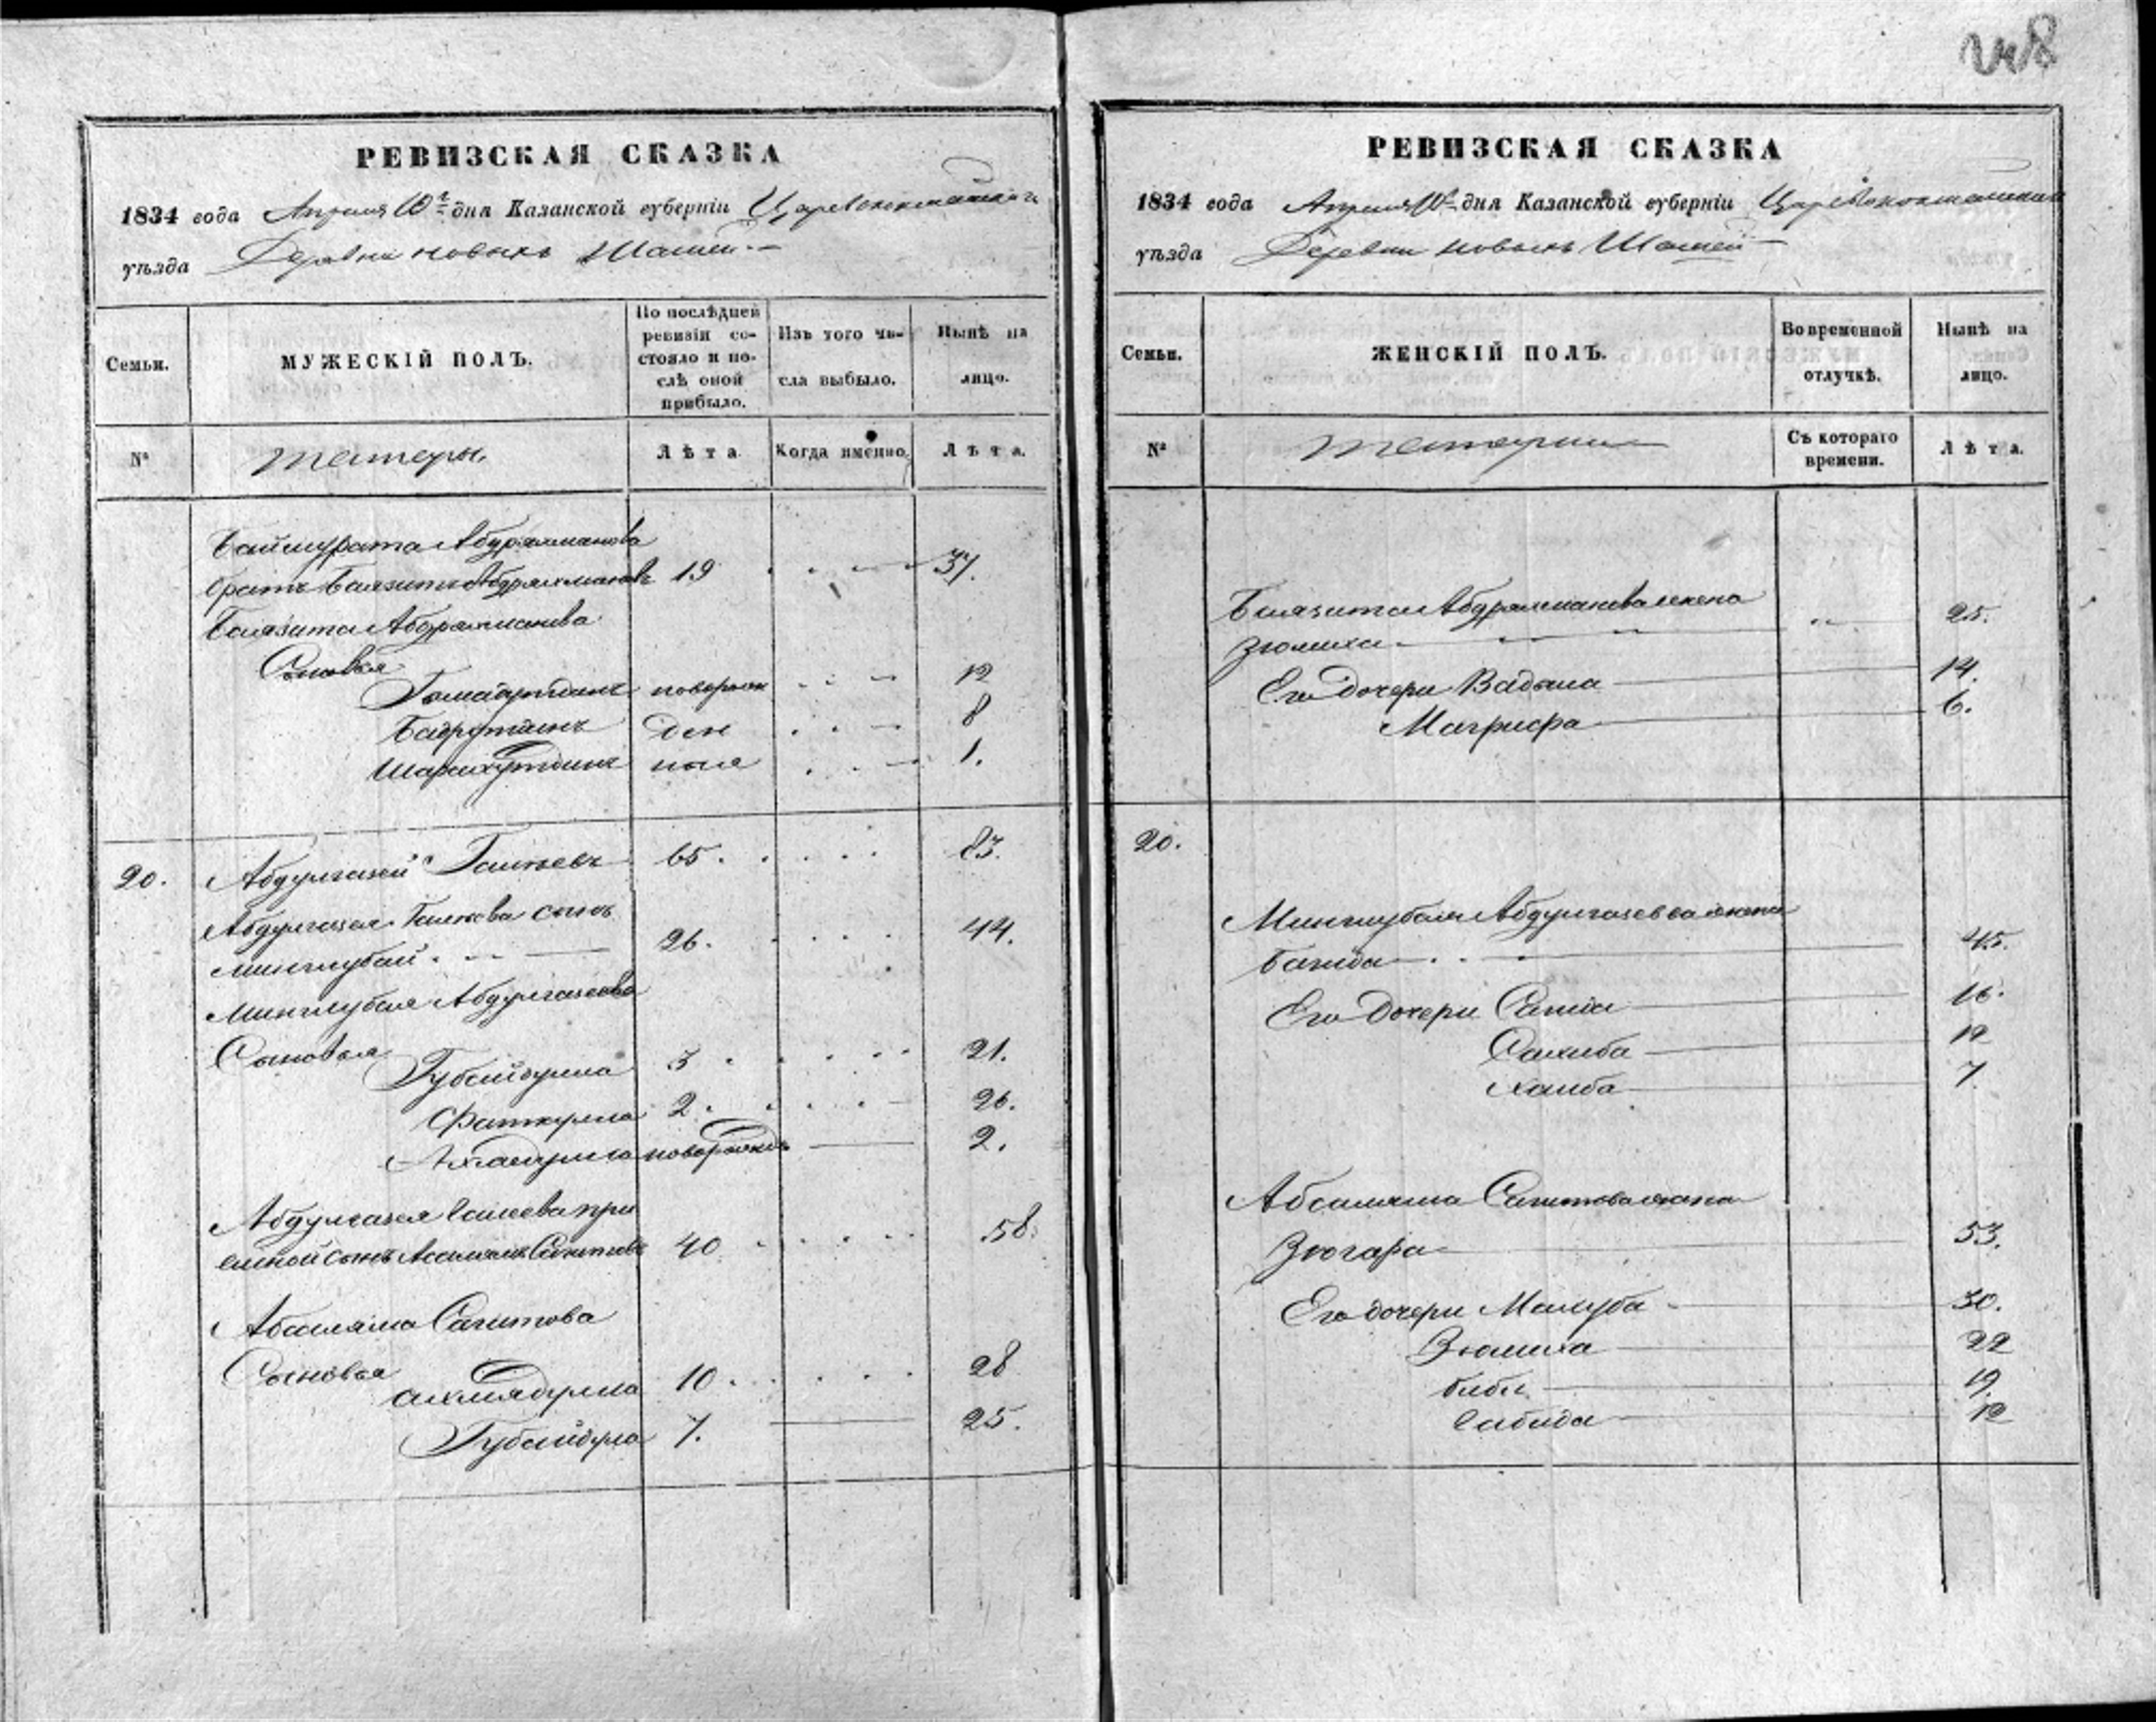 248
РЕВИЗСКАЯ СКАЗКА
1834 года Апреля 10 дня Казанской губерніи Царевококшайскаго
уѣзда Деревни новыхъ
Семьи.
МУЖЕСКІЙ ПОЛЪ.
По послѣдней ревизіи состояло и послѣ оной прибыло.
Изъ того числа выбыло.
Нынѣ на лицо.
№
татеры
Лѣта
Когда именно.
Лѣта.
Баймурата Абдрахманова
братъ Баязитъ Абдрахмановъ 19 37.
Баязита Абдрахманова
Сыновья
новорож 12
ден 8
ныя 1.
20. Абдулгазей 65. 83.
Абдулгазея сынъ
минглубай 26. 44.
Минглубая Абдулгазеева
Сыновья Губайдулла 3 21.
Фаткулла 2. 20.
новорожден 2.
Абдулгазея при
емной сынъ Сагитовъ 40 58.
Абсаляма Сагитова
Сыновья ахмядулла 10. 28
Губайдулла 7. 25.
РЕВИЗСКАЯ СКАЗКА
1834 года Апреля 10 дня Казанской губерніи Царевококшайскаго
уѣзда Деревни новыхъ
Семьи.
ЖЕНСКІЙ ПОЛЪ.
Во временной отлучкѣ.
Нынѣ на лицо.
№
Съ котораго времени.
Лѣта.
Баязита Абдрахманова жена
Зюлиха 25.
Его дочери 14.
Магрифа 6.
20.
Минглубая Абдулгазеева жена
45.
Его дочери 16.
Сахиба 12
7.
Абсаляма Сагитова жена
Зюгара 53.
Его дочери 30.
Зюлиха 22
биби 19.
12